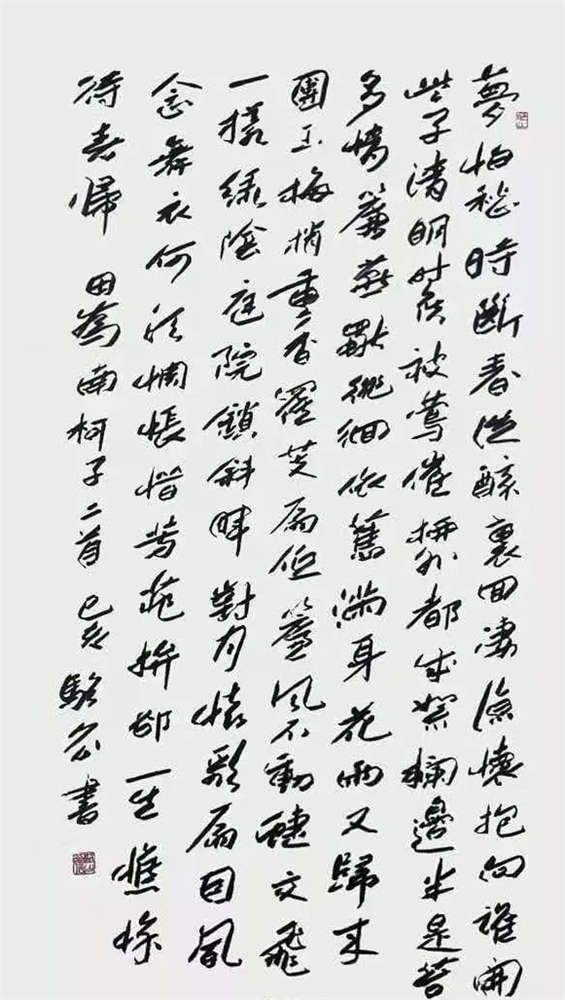 夢怕愁時斷春從醉裏回淒涼懷抱向誰開
些子清明時候被鶯催柳外都成絮欄邊半是苔
多情簾燕獨徘徊依舊滿身花雨又歸來
團玉梅梢重香羅芰扇低簾風不動蝶交飛
一樣綠陰庭院鎖斜暉對月懷歌扇因風
念舞衣何須惆悵惜芳菲拚却一生憔悴
待春歸 田為南柯子二首 己亥 駱書